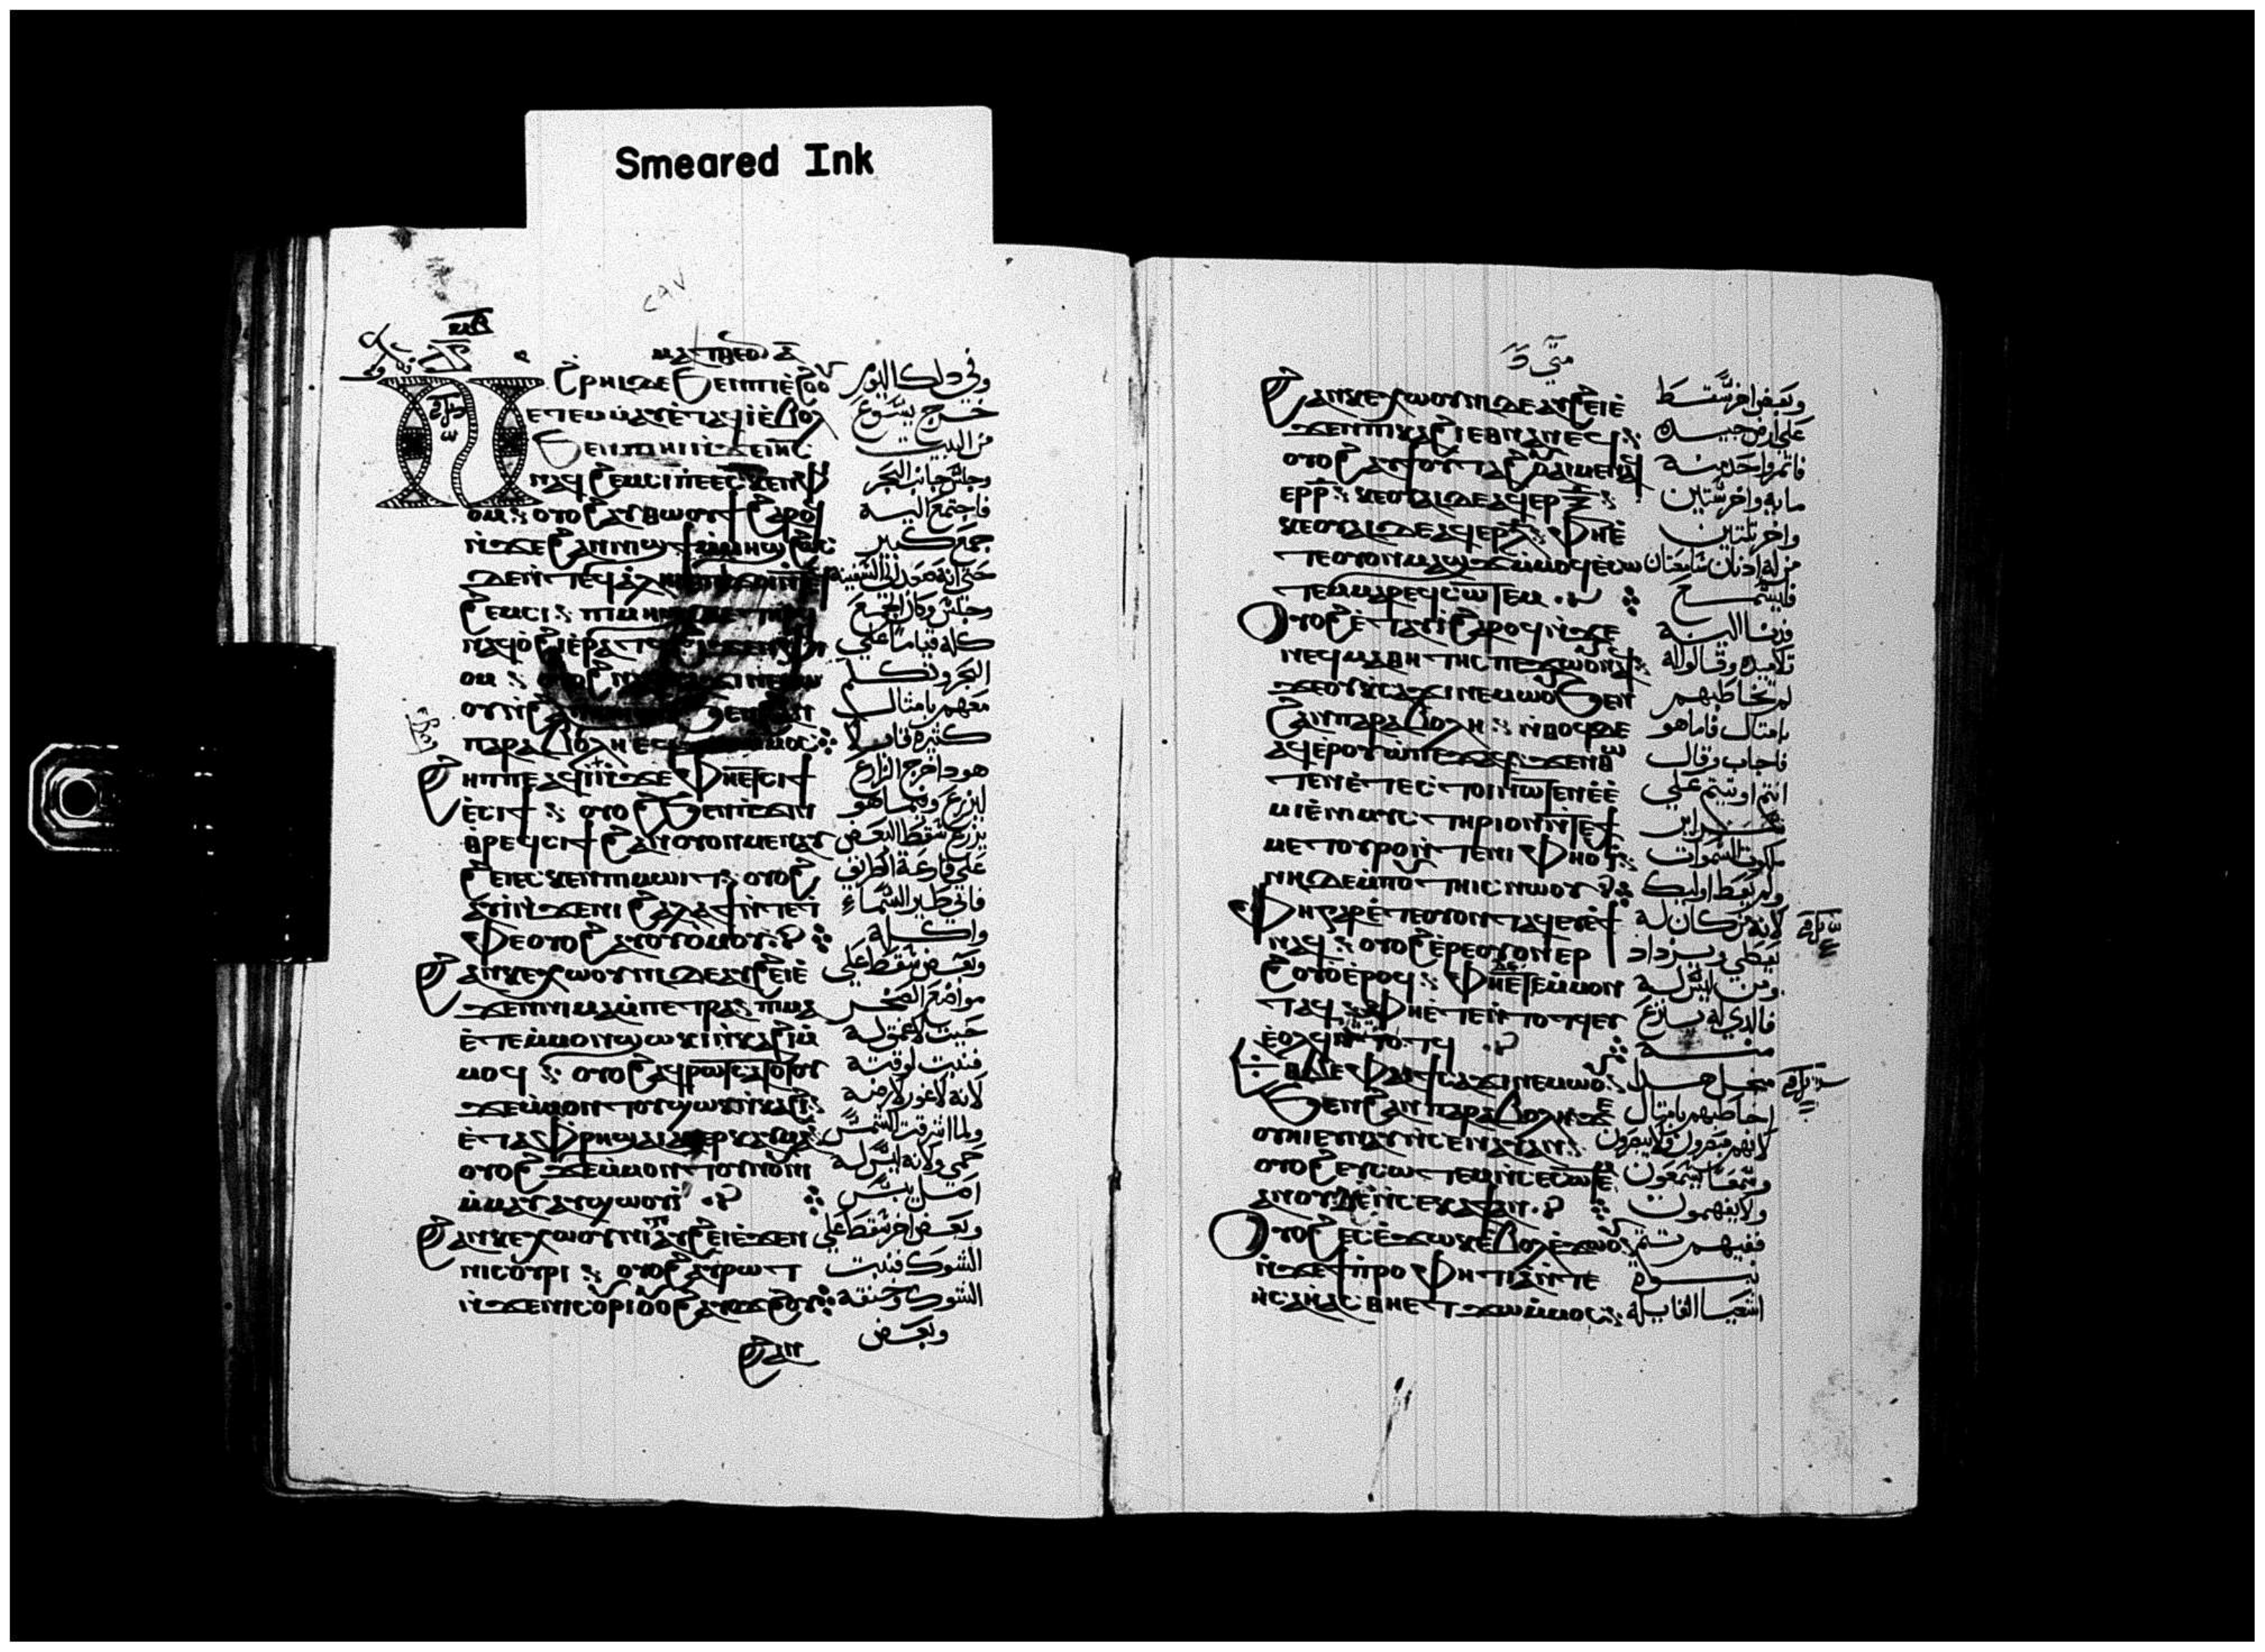 Smeared Ink
ϧⲣⲏⲓ ⲇⲉ ϧⲉⲛⲡⲓⲉ̀ϩⲟⲟⲩ
ⲉⲧⲉⲙ̀ⲙⲁⲩ ⲉ̀ⲧⲁϥⲓ ⲉ̀ⲃⲟⲗ
ϧⲉⲛⲡⲓⲏⲓ ⲛ̀ϫⲉⲓⲏⲥ
ⲛⲁϥϩⲉⲙⲥⲓ ⲡⲉ ⲉⲥⲕⲉⲛ ⲫ
ⲟⲙ ⲟⲩⲟϩ ⲁⲩⲑⲱⲟⲩϯ ϩⲁⲣⲟϥ
ⲛ̀ϫⲉϩⲁⲛⲛⲓϣϯ ⲙ̀ⲙⲏϣ
ϩⲉⲙⲥⲓ ⲡⲓⲙⲏϣ
ⲛⲁϥⲟ̀ϩⲓ ⲉ̀ⲣⲁⲧϥ
ⲟⲙ
ⲡⲁⲣⲁⲃⲟⲗⲏ
ϩⲏⲡⲡⲉ ⲁϥⲓ̀ ⲛ̀ϫⲉ ⲫⲏⲉⲧⲥⲓϯ
ⲉ̀ⲥⲓϯ ⲟⲩⲟϩ ϧⲉⲛⲡ̀ϫⲓⲛ
ⲑⲣⲉϥⲥⲓϯ ϩⲁⲛⲟⲩⲟⲛ ⲙⲉⲛ ⲁⲩ
ϩⲉⲓ ⲉⲥⲕⲉⲛ ⲡⲓⲙⲱⲓⲧ ⲟⲩⲟϩ
ⲁⲩⲓ̀ ⲛ̀ϫⲉⲛⲓϩⲁⲗⲁϯ ⲛ̀ⲧⲉⲧ̀
ⲫⲉ ⲟⲩⲟϩ ⲁⲩⲟⲩⲟⲙⲟⲩ
ϩⲁⲛⲕⲉⲭⲱⲟⲩⲛⲓ ⲇⲉ ⲁⲩϩⲉⲓ ⲉ̀
ϫⲉⲛⲡⲓⲙⲁ ⲙ̀ⲡⲉⲧⲣⲁ ⲡⲓⲙⲁ
ⲉ̀ⲧⲉⲙ̀ⲙⲟⲛ ϣⲱⲕ ⲛ̀ⲕⲁϩⲓ ⲙ̀
ⲙⲟϥ ⲟⲩⲟϩ ⲁϥⲣⲱⲧ ⲥⲁⲧⲟⲧⲟⲩ
ϫⲉⲙ̀ⲙⲟⲛ ⲧⲟⲩ ϣⲱⲕ ⲛ̀ⲕⲁϩⲓ
ⲉ̀ⲧⲁⲫⲣⲏ ϣⲁⲓ ⲇⲉ ⲁϥⲉⲣⲕⲁⲩⲙⲁ
ⲟⲩⲟϩ ϫⲉⲙ̀ⲙⲟⲛ ⲧⲟⲩⲛⲟⲩⲛⲓ
ⲙ̀ⲙⲁⲩ ⲁⲩϣⲱⲟⲩⲓ̀
ϩⲁⲛⲕⲉⲭⲱⲟⲩⲛⲓ ⲁⲩϩⲉⲓ ⲉ̀ϫⲉⲛ
ⲛⲓⲥⲟⲩⲣⲓ ⲟⲩⲟϩ ⲁⲩⲣⲱⲧ
ⲛ̀ϫⲉⲛⲓⲥⲟⲩⲣⲓ ⲟⲩⲟϩ ⲁⲩⲟϫϩⲟⲩ
ϩⲁⲛ
وفي دلك اليوم
خرج يسوع
من البيت
وجلس جانب البحر
فاجتمع اليه
جمع كبير
حتى انه صعد الى السفينه
وجلس وكان الجمع
كله قياما على
البحر وتكلم
معهم بامثال
كثيره قايلا
هودا خرج الزارع
ليزرع وفيما هو
يزرع سقط البعض
على قارعة الطريق
فاتى طير السماء
واكله
وبعض سقط على
مواضع الصخر
حيث لا عمق له
فنبت لوقته
لانه لا غور لارضه
ولما اشرقت الشمس
حمي ولانه ليس له
اصل يبس
وبعض اخر سقط على
الشوك فنبت
الشوك وخنقه
وبعض
متي
ϩⲁⲛⲕⲉⲭⲱⲟⲩⲛⲓ ⲇⲉ ⲁⲩϩⲉⲓ ⲉ̀
ϫⲉⲛⲡⲓⲕⲁϩⲓ ⲉⲑⲛⲁⲛⲉϥ
ⲟⲩⲟϩ ⲁⲩϯⲟⲩⲧⲁϩ ⲟⲩⲁⲓ ⲙⲉⲛ ⲁϥ
ⲉⲣⲣ̅ ⲕⲉⲟⲩⲁⲓ ⲇⲉ ⲁϥⲉⲣⲝ̅
ⲕⲉⲟⲩⲁⲓ ⲇⲉ ⲁϥⲉⲣⲗ̅ ⲫⲏⲉ̀
ⲧⲉⲟⲩⲟⲛ ⲙⲁϣϫ ⲙ̀ⲙⲟϥ ⲉ̀ⲥⲱ
ⲧⲉⲙ ⲙⲁⲣⲉϥⲥⲱⲧⲉⲙ
ⲟⲩⲟϩ ⲉ̀ⲧⲁⲩⲓ̀ ϩⲁⲣⲟϥ ⲛ̀ϫⲉ
ⲛⲉϥⲙⲁⲑⲏⲧⲏⲥ ⲡⲉϫⲱⲟⲩ ⲛⲁϥ
ϫⲉⲟⲩ ⲕⲥⲁϫⲓ ⲛⲉⲙⲱⲟⲩ ϧⲉⲛ
ϩⲁⲛⲡⲁⲣⲁⲃⲟⲗⲏ ⲛ̀ⲑⲟϥ ⲇⲉ
ⲁϥⲉ̀ⲣⲟⲩⲱ̀ ⲡⲉϫⲁϥ ϫⲉⲛⲑⲱ
ⲧⲉⲛ ⲉ̀ⲧⲉⲥⲧⲟⲓ ⲛⲱⲧⲉⲛ ⲉ̀ⲉ̀
ⲙⲓ ⲉ̀ⲛⲓⲙⲩⲥⲧⲏⲣⲓⲟⲛ ⲛ̀ⲧⲉϯ
ⲙⲉⲧⲟⲩⲣⲟ ⲛ̀ⲧⲉⲛⲓⲫⲏⲟⲩⲓ
ⲛⲏ ⲇⲉ ⲙ̀ⲡⲟⲩⲧⲏⲓⲥ ⲛⲱⲟⲩ
ⲫⲏ ⲅⲁⲣ ⲉ̀ⲧⲉⲟⲩⲟⲛ ⲧⲁϥ ⲉⲩⲉ̀ϯ
ⲛⲁϥ ⲟⲩⲟϩ ⲉ̀ⲣⲉⲟⲩⲟⲛ ⲉⲣ
ϩⲟⲩⲟ̀ ⲉ̀ⲣⲟϥ ⲫⲏ ⲇⲉ ⲉⲧⲉⲙ̀ⲙⲟⲛ
ⲧⲁϥ ⲫⲏⲉ̀ⲧⲉⲛⲧⲟⲧϥ ⲉⲩ
ⲉ̀ⲟⲗϥ ⲛ̀ⲧⲟⲧϥ
ⲉⲑⲃⲉ ⲫⲁⲓ ϯⲥⲁϫⲓ ⲛⲉⲙⲱⲟⲩ
ϧⲉⲛϩⲁⲛⲡⲁⲣⲁⲃⲟⲗⲏ ϫⲉ
ⲟⲩⲏⲓ ⲉⲩⲛⲁⲩ ⲛ̀ⲥⲉⲛⲁⲩ ⲁⲛ
ⲟⲩⲟϩ ⲉⲩⲥⲱⲧⲉⲙ ⲛ̀ⲥⲉⲥⲱⲧⲉⲙ
ⲁⲛ ⲟⲩⲇⲉ ⲛ̀ⲥⲉⲕⲁϯ ⲁⲛ
ⲟⲩⲟϩ ⲉⲥⲉ̀ϫⲱⲕ ⲉ̀ⲃⲟⲗ ⲉ̀ϫⲱⲟⲩ
ⲛ̀ϫⲉ ϯⲡ̀ⲣⲟⲫⲏⲧⲓⲁ̀ ⲛ̀ⲧⲉ
ⲏⲥⲁⲏ̀ⲁⲥ ⲑⲏⲉⲧϫⲱ ⲙ̀ⲙⲟⲥ
وبعض اخر سقط
على ارض جيده
فاثمر واحد منه
مايه واخر ستين
واخر ثلثين
من له ادنان سامعتان
فليسمع
فدنا اليه
تلاميده وقالوا له
لم تخاطبهم
بامثال فاما هو
فاجاب وقال
انتم اوتيتم علم
سراير
ملكوت السموات
ولم يعط اوليك
لانه من كان له
يعطى ويزداد
ومن ليس له
فالدي له ينزع
منه
من اجل هدا
اخاطبهم بامثال
لانهم يبصرون ولا يبصرون
وسمعا يسمعون
ولا يفهمون
ففيهم تتم
نبوة
اشعيا القايله